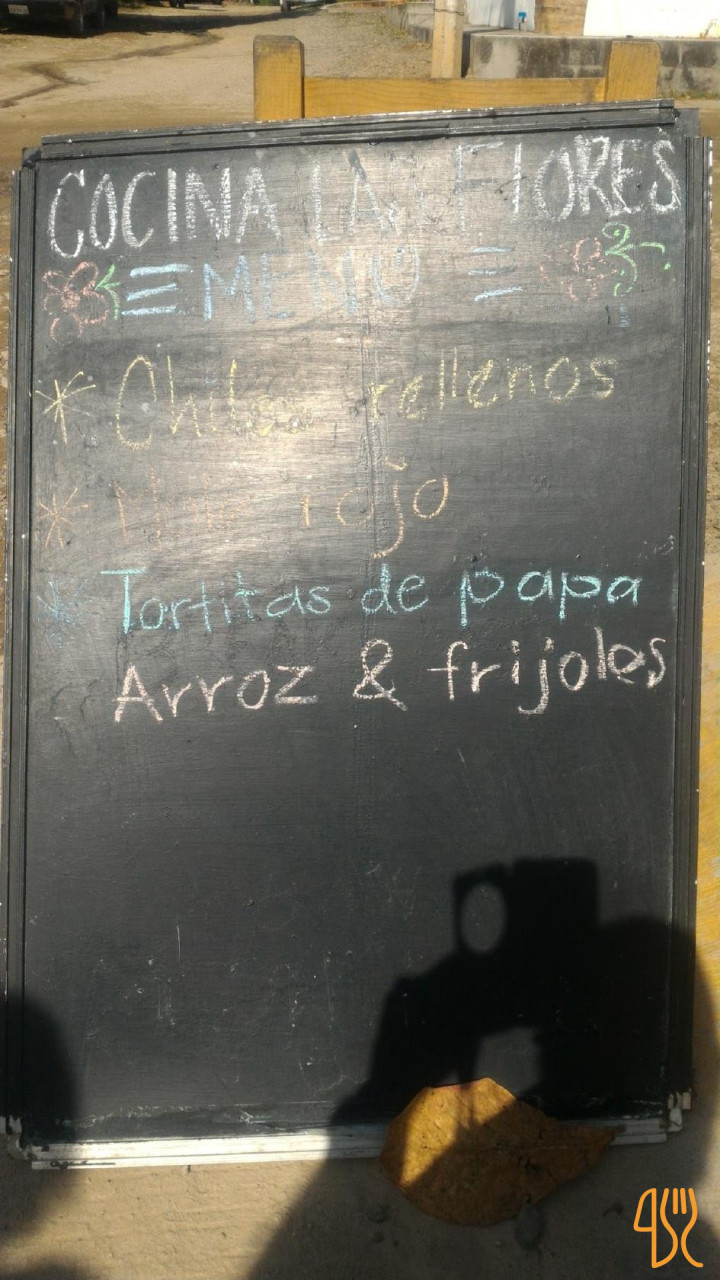 COCINA LAS FLORES
= MENÚ =
* Chiles rellenos
* Mole rojo
* Tortitas de papa
Arroz & frijoles